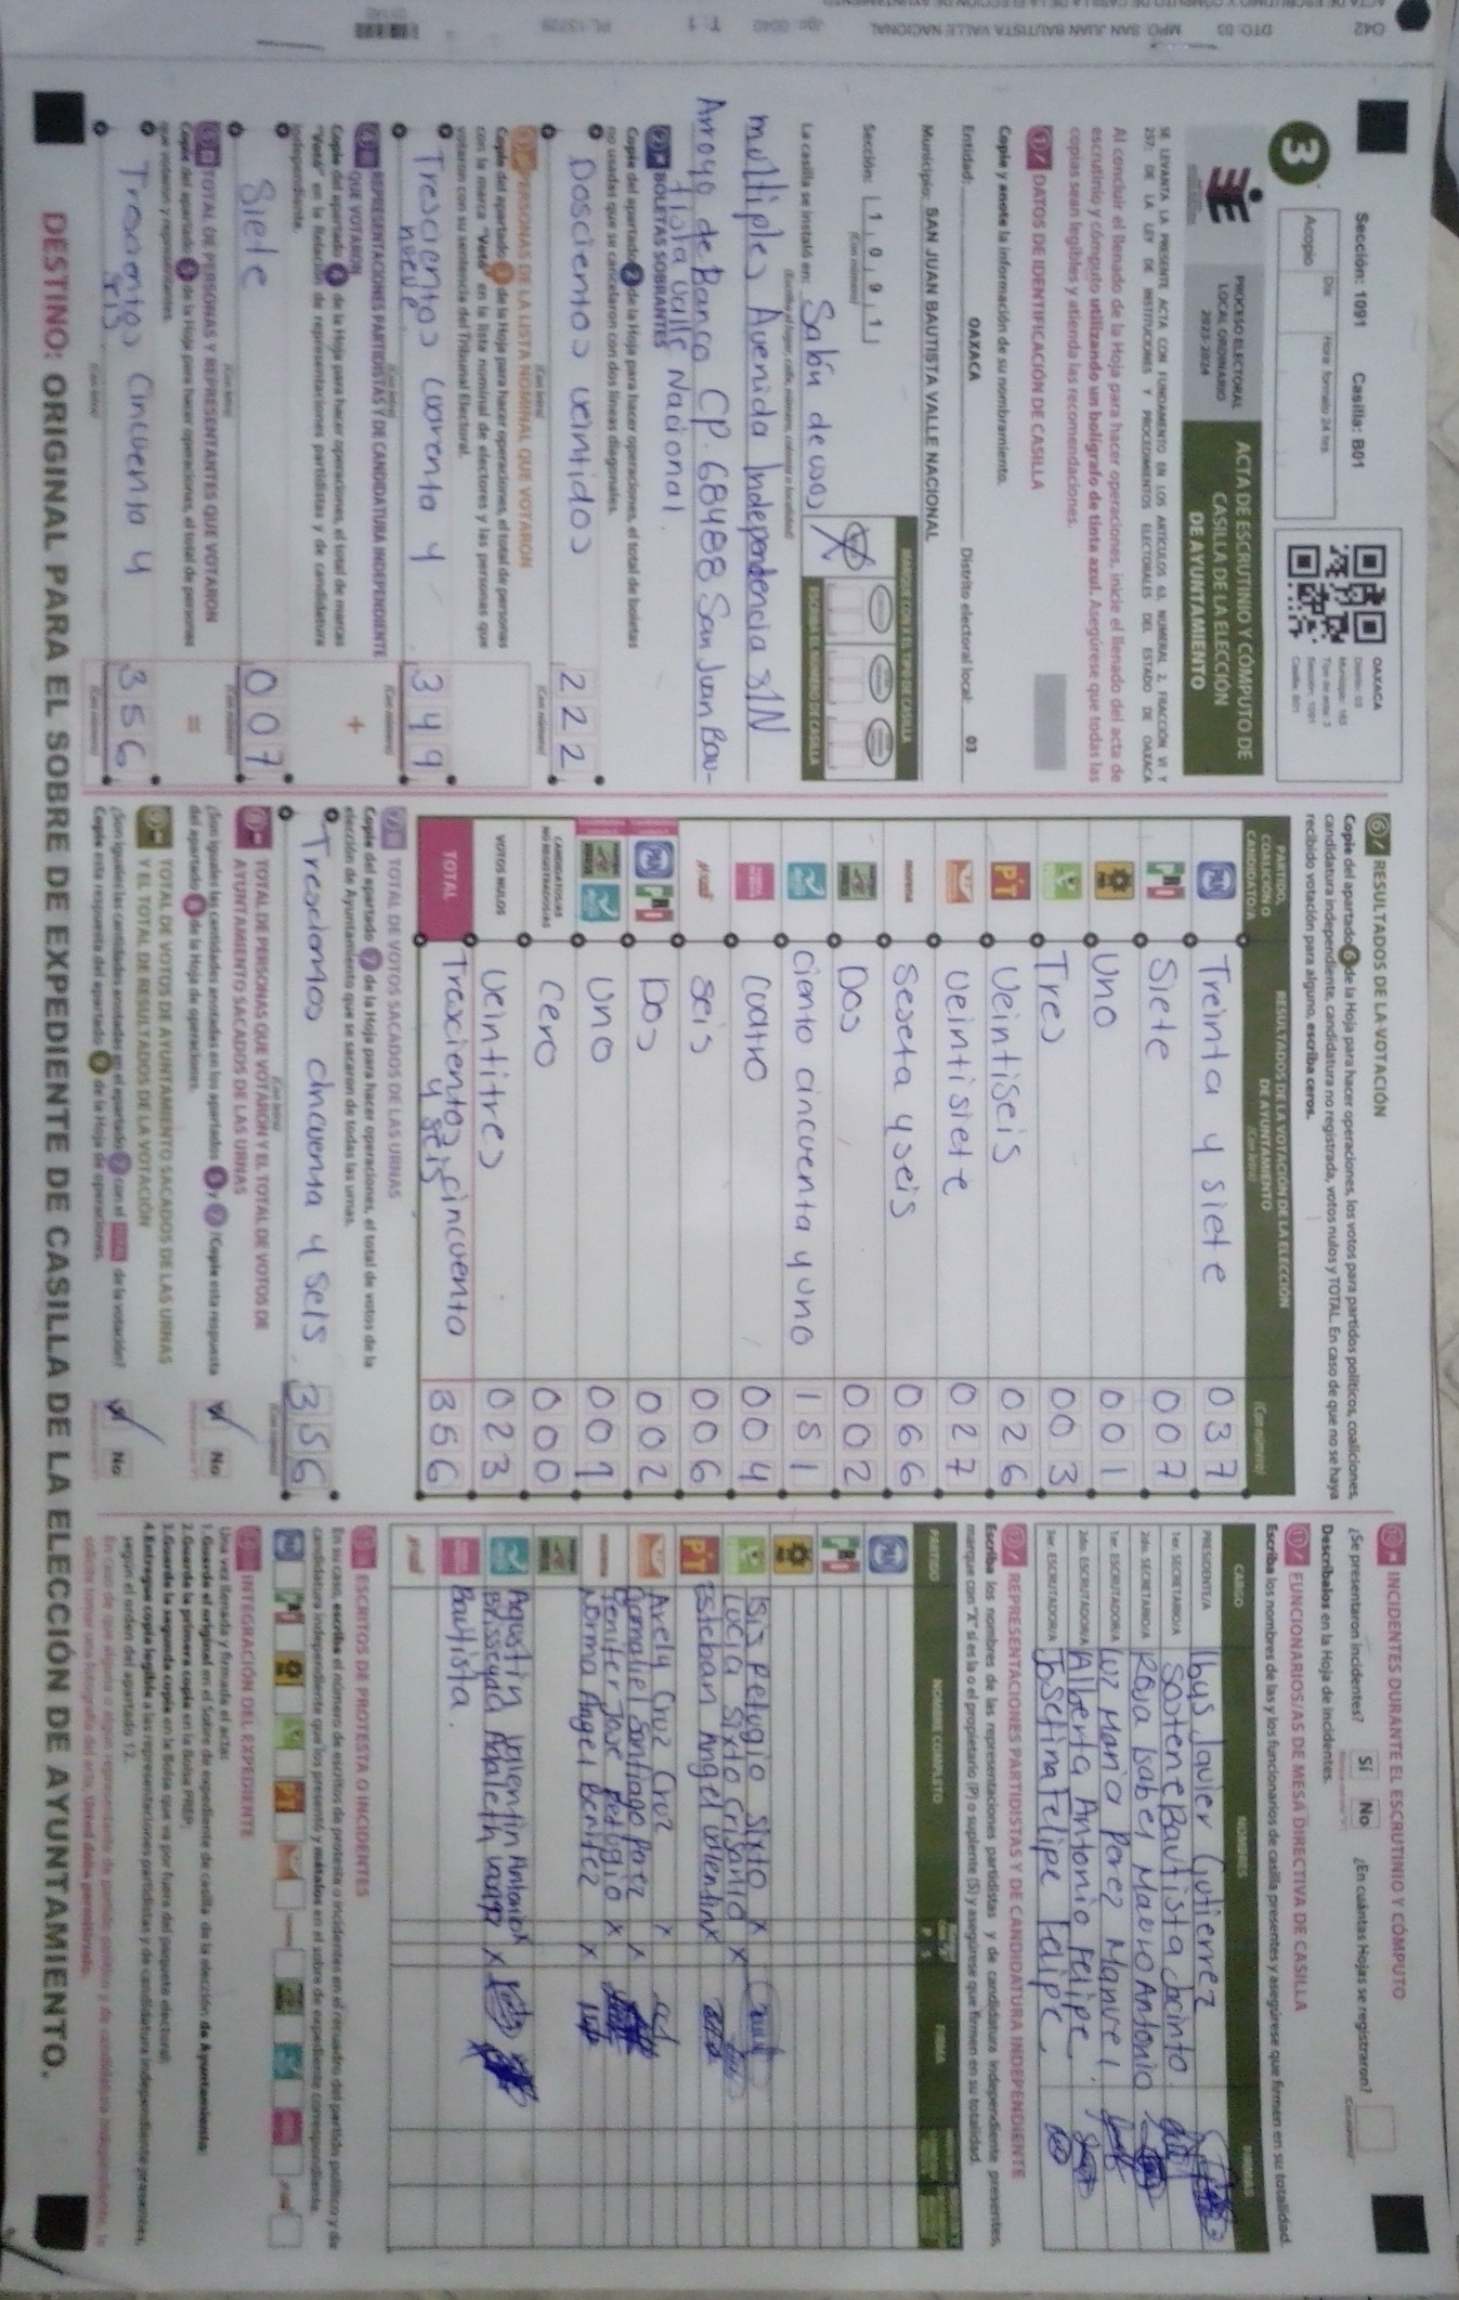 042 DTO. 03 MPO. SAN JUAN BAUTISTA VALLE NACIONAL
Sección: 1091 Casilla: B01
3
Día Hora formato 24 hrs
Acopio
OAXACA
PROCESO ELECTORAL
LOCAL ORDINARIO
2023-2024
ACTA DE ESCRUTINIO Y CÓMPUTO DE
CASILLA DE LA ELECCIÓN
DE AYUNTAMIENTO
SE LEVANTA LA PRESENTE ACTA CON FUNDAMENTO EN LOS ARTÍCULOS 63, NUMERAL 2, FRACCIÓN VI Y
257; DE LA LEY DE INSTITUCIONES Y PROCEDIMIENTOS ELECTORALES DEL ESTADO DE OAXACA
Al concluir el llenado de la Hoja para hacer operaciones, inicie el llenado del acta de
escrutinio y cómputo utilizando un bolígrafo de tinta azul. Asegúrese que todas las
copias sean legibles y atienda las recomendaciones.
1 DATOS DE IDENTIFICACIÓN DE CASILLA
Copie y anote la información de su nombramiento.
Entidad: OAXACA Distrito electoral local: 03
Municipio: SAN JUAN BAUTISTA VALLE NACIONAL
Sección: 1 0 9 1
(Con número)
MARQUE CON X EL TIPO DE CASILLA
ESCRIBA EL NÚMERO DE CASILLA
La casilla se instaló en: Salón de usos
(Escriba el lugar, calle, número, colonia o localidad)
multiples Avenida Independencia S/N
Arroyo de Banco CP. 68488 San Juan Bau-
tista Valle Nacional.
2 BOLETAS SOBRANTES
Copie del apartado 2 de la Hoja para hacer operaciones, el total de boletas
no usadas que se cancelaron con dos líneas diagonales.
Doscientos veintidos 222
(Con letra) (Con número)
3 PERSONAS DE LA LISTA NOMINAL QUE VOTARON
Copie del apartado 3 de la Hoja para hacer operaciones, el total de personas
con la marca "Votó" en la lista nominal de electores y las personas que
votaron con su sentencia del Tribunal Electoral.
Trescientos Cuarenta y
nueve 349
(Con letra) (Con número)
+
4 REPRESENTACIONES PARTIDISTAS Y DE CANDIDATURA INDEPENDIENTE
QUE VOTARON
Copie del apartado 4 de la Hoja para hacer operaciones, el total de marcas
"Votó" en la Relación de representaciones partidistas y de candidatura
independiente.
Siete 007
(Con letra) (Con número)
=
5 TOTAL DE PERSONAS Y REPRESENTANTES QUE VOTARON
Copie del apartado 5 de la Hoja para hacer operaciones, el total de personas
que votaron y representantes.
Trescientos Cincuenta y
seis 356
(Con letra) (Con número)
6 RESULTADOS DE LA VOTACIÓN
Copie del apartado 6 de la Hoja para hacer operaciones, los votos para partidos políticos, coaliciones,
candidatura independiente, candidatura no registrada, votos nulos y TOTAL. En caso de que no se haya
recibido votación para alguno, escriba ceros.
PARTIDO,
COALICIÓN O
CANDIDATO/A
RESULTADOS DE LA VOTACIÓN DE LA ELECCIÓN
DE AYUNTAMIENTO
(Con letra) (Con número)
PAN Treinta y siete 037
PRI Siete 007
Uno 001
Tres 003
PT Veintiseis 026
Veintisiete 027
morena Seseta y seis 066
Dos 002
Ciento cincuenta y uno 151
Cuatro 004
seis 006
PAN PRI Dos 002
uno 001
CANDIDATOS/AS
NO REGISTRADOS/AS Cero 000
VOTOS NULOS Veintitres 023
TOTAL Trescientos cincuenta
y seis 356
7 TOTAL DE VOTOS SACADOS DE LAS URNAS
Copie del apartado 7 de la Hoja para hacer operaciones, el total de votos de la
elección de Ayuntamiento que se sacaron de todas las urnas.
Trescientos cincuenta y seis 356
(Con letra) (Con número)
8 TOTAL DE PERSONAS QUE VOTARON Y EL TOTAL DE VOTOS DE
AYUNTAMIENTO SACADOS DE LAS URNAS
¿Son iguales las cantidades anotadas en los apartados 5 y 7? Copie esta respuesta
del apartado 8 de la Hoja de operaciones. No
9 TOTAL DE VOTOS DE AYUNTAMIENTO SACADOS DE LAS URNAS
Y EL TOTAL DE RESULTADOS DE LA VOTACIÓN
¿Son iguales las cantidades anotadas en el apartado 7 con el TOTAL de la votación?
Copie esta respuesta del apartado 9 de la Hoja de operaciones. No
10 INCIDENTES DURANTE EL ESCRUTINIO Y CÓMPUTO
¿Se presentaron incidentes? Sí No ¿En cuántas Hojas se registraron?
Descríbalos en la Hoja de incidentes.
11 FUNCIONARIOS/AS DE MESA DIRECTIVA DE CASILLA
Escriba los nombres de las y los funcionarios de casilla presentes y asegúrese que firmen en su totalidad.
CARGO NOMBRES FIRMAS
PRESIDENTE/A Ibys Jaquier Gutierrez
1er. SECRETARIO/A Sostene Bautista Jacinto
2do. SECRETARIO/A Rosa Isabel Mauro Antonio
1er. ESCRUTADOR/A Luz Maria Perez Manuel
2do. ESCRUTADOR/A Alberta Antonio Felipe
3er. ESCRUTADOR/A Josefina Felipe Felipe
12 REPRESENTACIONES PARTIDISTAS Y DE CANDIDATURA INDEPENDIENTE
Escriba los nombres de las representaciones partidistas y de candidatura independiente presentes,
marque con "X" si es la o el propietario (P) o suplente (S) y asegúrese que firmen en su totalidad.
PARTIDO NOMBRE COMPLETO P S FIRMA
PAN
PRI
Isis Pelugio Sixto x
Lucia Sixto Crisanto x
PT Esteban Angel x
Arely Cruz Cruz x
Gamaliel Santiago Perez x
morena x
Norma Angel Benitez x
Agustin Antonio x
x
Bautista.
13 ESCRITOS DE PROTESTA O INCIDENTES
En su caso, escriba el número de escritos de protesta o incidentes en el recuadro del partido político y de
candidatura independiente que los presentó y métalos en el sobre de expediente correspondiente.
14 INTEGRACIÓN DEL EXPEDIENTE
Una vez llenada y firmada el acta:
1. Guarde el original en el Sobre de expediente de casilla de la elección de Ayuntamiento.
2. Guarde la primera copia en la Bolsa PREP.
3. Guarde la segunda copia en la Bolsa que va por fuera del paquete electoral.
4. Entregue copia legible a las representaciones partidistas y de candidatura independiente presentes,
según el orden del apartado 12.
DESTINO: ORIGINAL PARA EL SOBRE DE EXPEDIENTE DE CASILLA DE LA ELECCIÓN DE AYUNTAMIENTO.